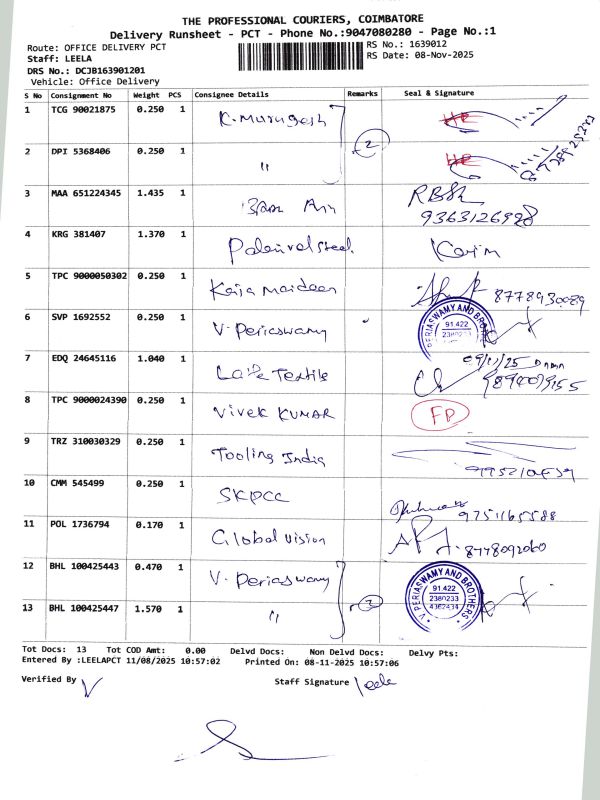 THE PROFESSIONAL COURIERS, COIMBATORE
Delivery Runsheet - PCT - Phone No.:9047080280 - Page No.:1
Route: OFFICE DELIVERY PCT
RS No.: 1639012
Staff: LEELA
RS Date: 08-Nov-2025
DRS No.: DCJB163901201
Vehicle: Office Delivery
S No Consignment No Weight PCS Consignee Details Remarks Seal & Signature
1 TCG 90021875 0.250 1 K. Murugesh
2 DPI 5368406 0.250 1 " 2
3 MAA 651224345 1.435 1
9363126928
4 KRG 381407 1.370 1 Karim
5 TPC 9000050302 0.250 1 Kaja Maideen 8778930089
6 SVP 1692552 0.250 1 V. Periaswamy PERIASWAMY AND BROTHERS 91.422 2380233
7 EDQ 24645116 1.040 1 Textile 09/11/25
8 TPC 9000024390 0.250 1 Vivek KUMAR FD
9 TRZ 310030329 0.250 1 Tooling India
10 CMM 545499 0.250 1 SKPCC 9751165588
11 POL 1736794 0.170 1 Global vision 8778092060
12 BHL 100425443 0.470 1 V. Periaswamy V PERIASWAMY AND BROTHERS 91.422 2380233 4362434
13 BHL 100425447 1.570 1 " 2
Tot Docs: 13 Tot COD Amt: 0.00 Delvd Docs: Non Delvd Docs: Delvy Pts:
Entered By :LEELAPCT 11/08/2025 10:57:02 Printed On: 08-11-2025 10:57:06
Verified By Staff Signature leela